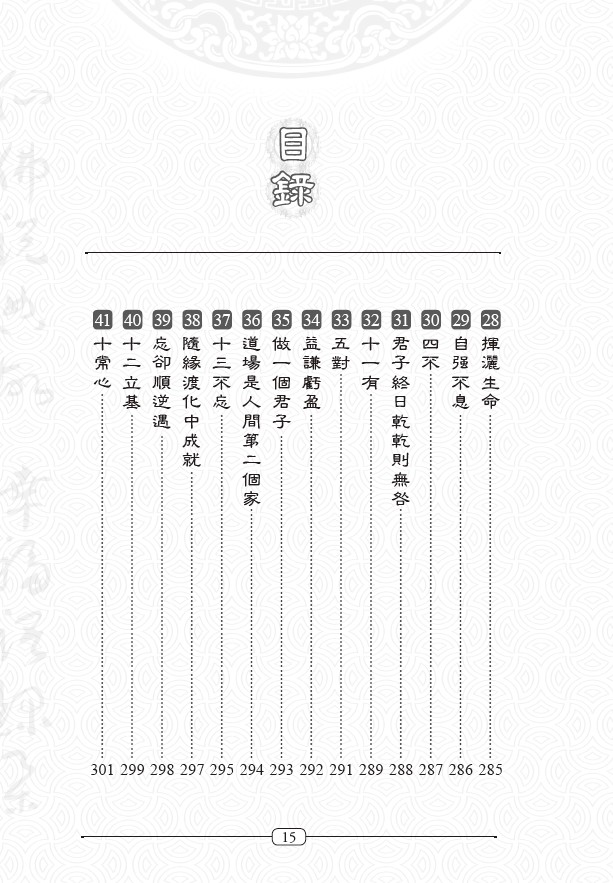 目錄
28 揮灑生命 285
29 自强不息 286
30 四不 287
31 君子終日乾乾則無咎 288
32 十一有 289
33 五對 291
34 益謙虧盈 292
35 做一個君子 293
36 道場是人間第二個家 294
37 十三不忘 295
38 隨緣渡化中成就 297
39 忘卻順逆遇 298
40 十二立基 299
41 十常心 301
15